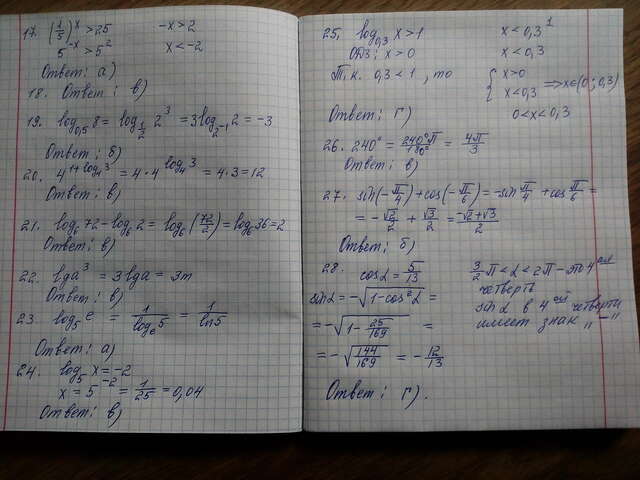 17. (1/5)^x > 25   -x > 2
5^-x > 5^2   x < -2
Ответ: а)
18. Ответ: в)
19. log_0,5 8 = log_1/2 2^3 = 3 log_2^-1 2 = -3
Ответ: б)
20. 4^(1+log_4 3) = 4·4^(log_4 3) = 4·3 = 12
Ответ: в)
21. log_6 72 - log_6 2 = log_6 (72/2) = log_6 36 = 2
Ответ: в)
22. lg a^3 = 3 lg a = 3m
Ответ: в)
23. log_5 e = 1/log_e 5 = 1/ln5
Ответ: а)
24. log_5 x = -2
x = 5^-2 = 1/25 = 0,04
Ответ: в)
25. log_0,3 x > 1   x < 0,3^1
ОДЗ: x > 0   x < 0,3
Т.к. 0,3 < 1, то { x > 0
x < 0,3 ⇒ x ∈ (0; 0,3)
Ответ: г)   0 < x < 0,3
26. 240° = 240°π/180° = 4π/3
Ответ: в)
27. sin(-π/4) + cos(-π/6) = -sin π/4 + cos π/6 =
= -√2/2 + √3/2 = (-√2+√3)/2
Ответ: б)
28. cos α = 5/13   3/2 π < α < 2π - это 4ой
четверть
sin α = -√(1-cos²α) =   sin α в 4ой четверти
имеет знак "-"
= -√(1 - 25/169) =
= -√(144/169) = -12/13
Ответ: г).